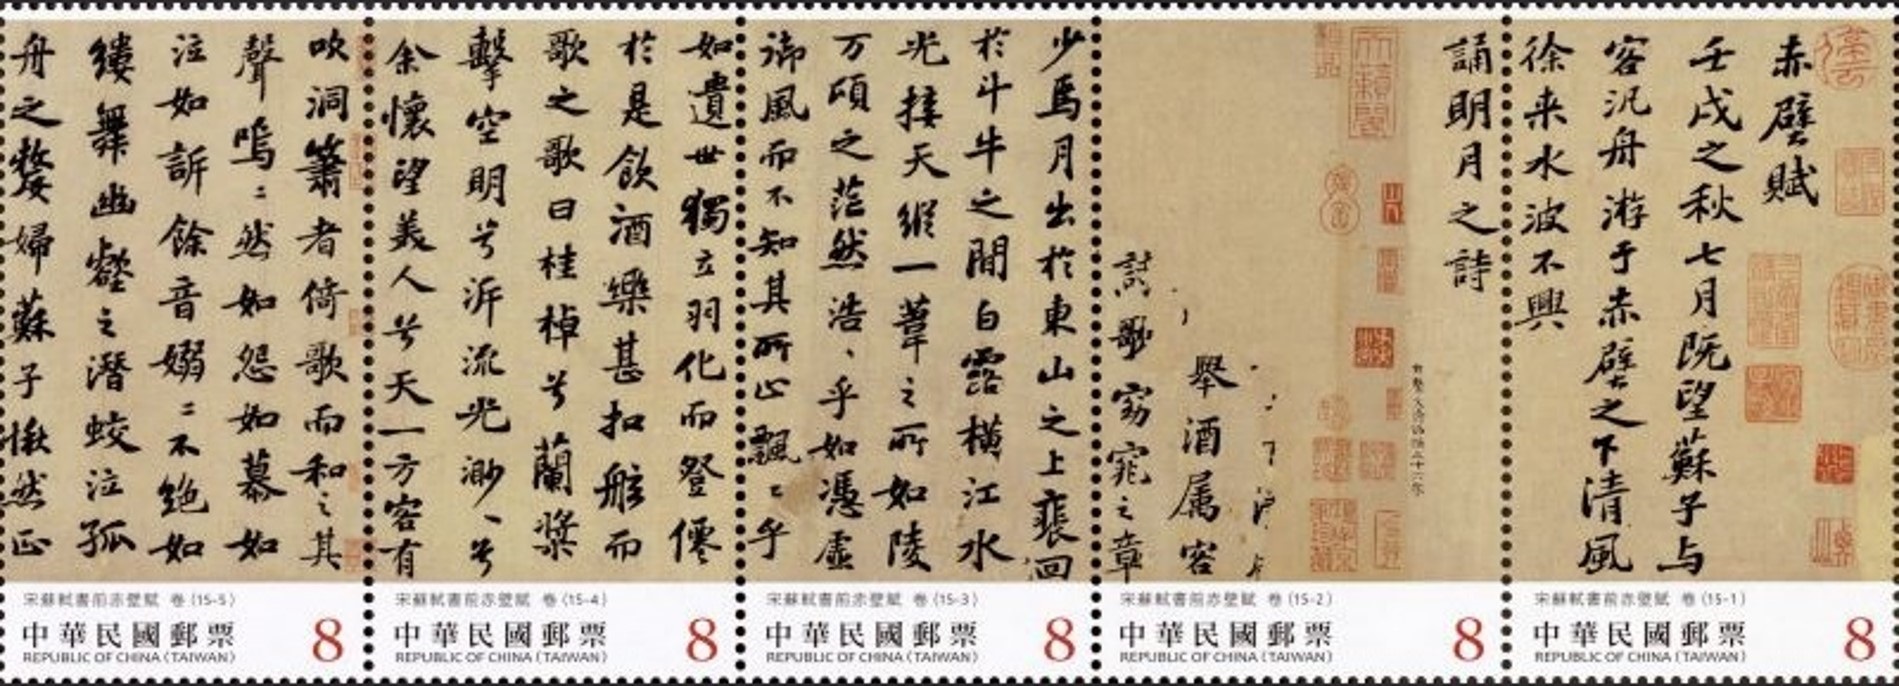 赤壁賦
壬戌之秋七月既望蘇子与
客汎舟游于赤壁之下清風
徐来水波不興
宋蘇軾書前赤壁賦 卷 (15-1)
中華民國郵票
REPUBLIC OF CHINA (TAIWAN)
8
誦明月之詩
舉酒属客
歌窈窕之章
宋蘇軾書前赤壁賦 卷 (15-2)
中華民國郵票
REPUBLIC OF CHINA (TAIWAN)
8
少焉月出於東山之上裵回
於斗牛之間白露橫江水
光接天縱一葦之所如陵
万頃之茫然浩〻乎如憑虚
御風而不知其所止飄〻乎
宋蘇軾書前赤壁賦 卷 (15-3)
中華民國郵票
REPUBLIC OF CHINA (TAIWAN)
8
如遺世獨立羽化而登僊
於是飲酒樂甚扣舷而
歌之歌曰桂棹兮蘭槳
擊空明兮泝流光渺〻兮
余懷望美人兮天一方客有
宋蘇軾書前赤壁賦 卷 (15-4)
中華民國郵票
REPUBLIC OF CHINA (TAIWAN)
8
吹洞簫者倚歌而和之其
聲嗚〻然如怨如慕如
泣如訴餘音嫋〻不絶如
縷舞幽壑之潛蛟泣孤
舟之嫠婦蘇子愀然正
宋蘇軾書前赤壁賦 卷 (15-5)
中華民國郵票
REPUBLIC OF CHINA (TAIWAN)
8